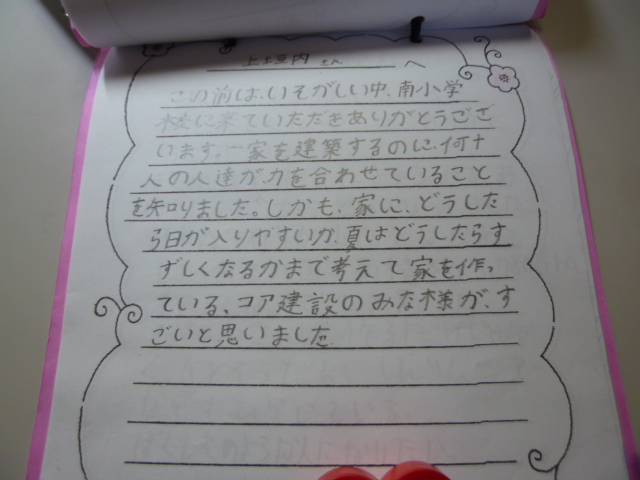 上垣内さんへ
この前は、いそがしい中、南小学
校に来ていただきありがとうござ
います。一家を建築するのに、何十
人の人達が、力を合わせていること
を知りました。しかも、家に、どうした
ら日が入りやすいか、夏はどうしたらす
ずしくなるかまで考えて家を作っ
ている、コア建設のみな様が、す
ごいと思いました